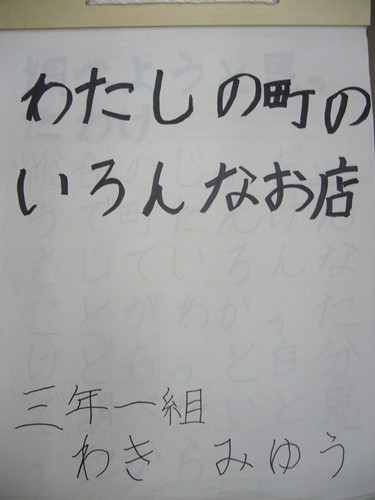 わたしの町の
いろんなお店
三年一組
わき みゆう